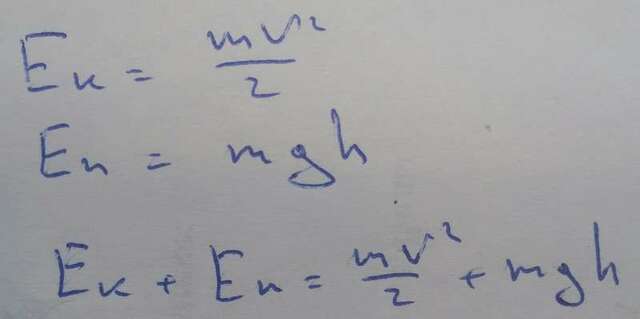 Eк = mv²/2
Eп = mgh
Eк + Eп = mv²/2 + mgh